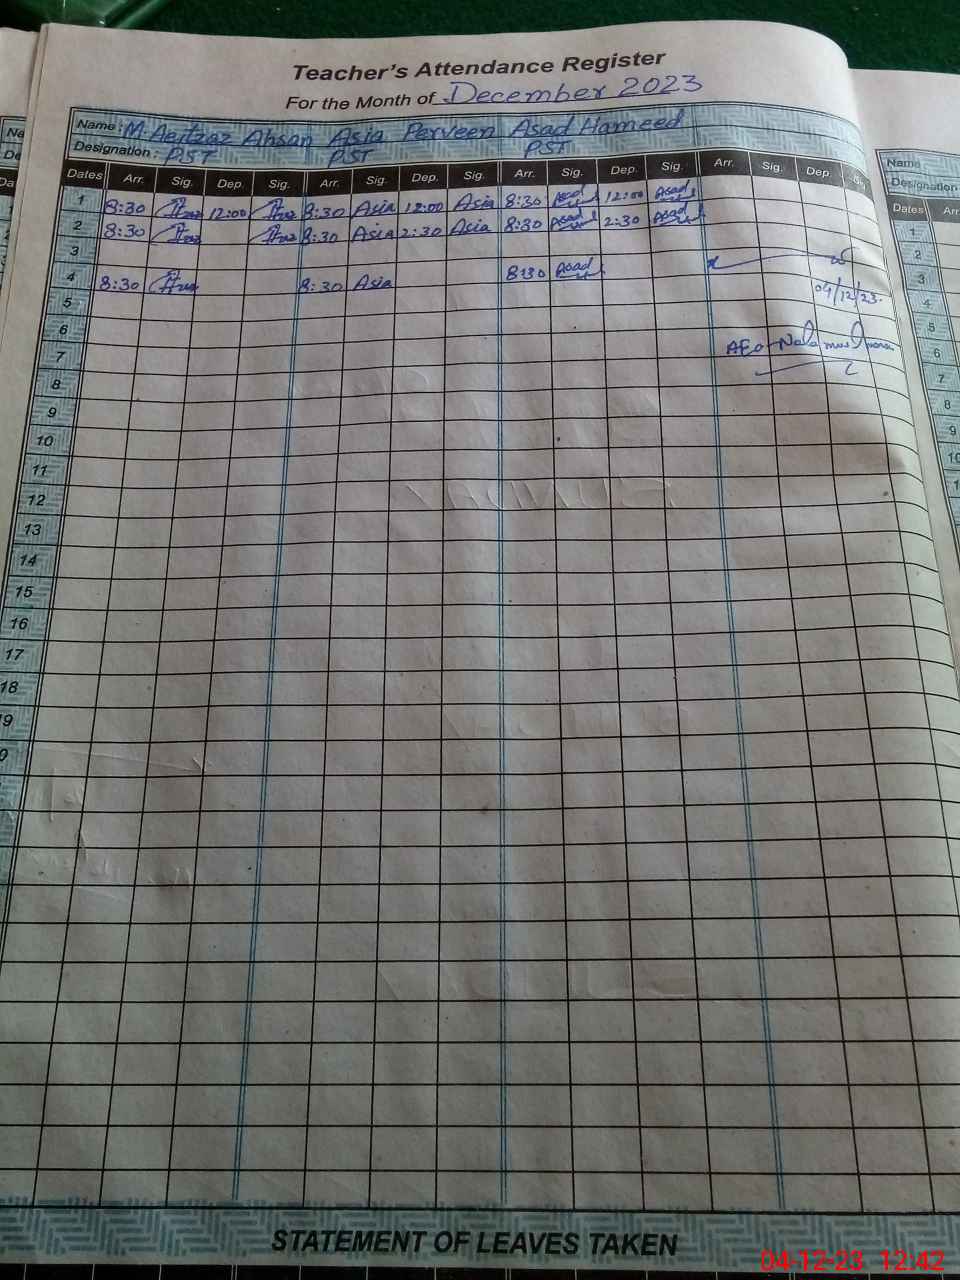 Teacher's Attendance Register
For the Month of December 2023
Name: M. Aetzaz Ahsan Asia Perveen Asad Hameed
Designation: PST PST PST
Dates Arr. Sig. Dep. Sig. Arr. Sig. Dep. Sig. Arr. Sig. Dep. Sig. Arr. Sig. Dep. Sig.
1 8:30 12:00 8:30 Asia 12:00 Asia 8:30 Asad 12:00 Asad
2 8:30 8:30 Asia 2:30 Asia 8:30 Asad 2:30 Asad
3
4 8:30 8:30 Asia 8:30 Asad
04/12/23.
5
6
AEO
7
8
9
10
11
12
13
14
15
16
17
18
19
STATEMENT OF LEAVES TAKEN
Name
Designation
Dates Arr
1
2
3
4
5
6
7
8
9
10
04-12-23 12:42